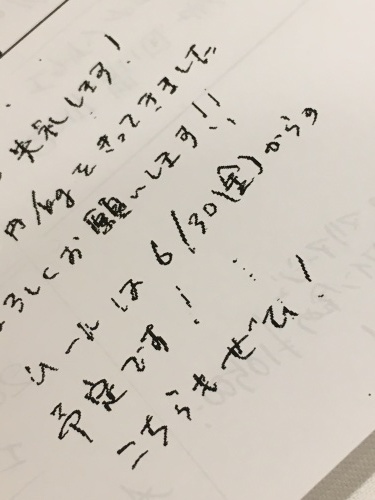 失礼します!
円/kgをきってきました
ろしくお願いします!!
ールは 6/30(金)からの
予定です!
こちらもぜひ!